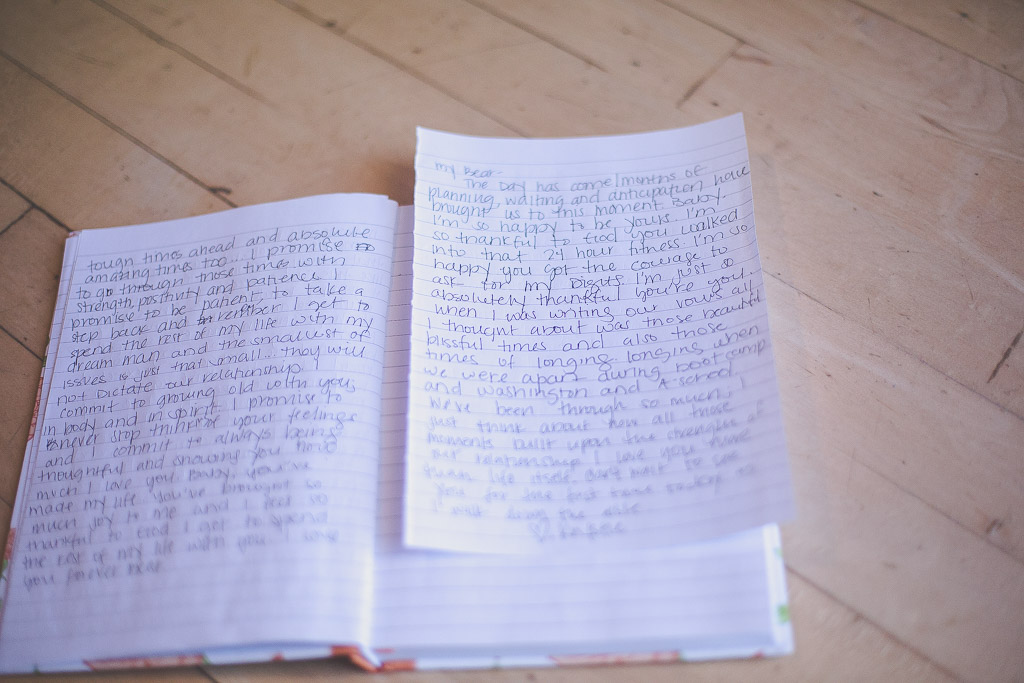 tough times ahead and absolute
amazing times too... I promise to
to go through those times with
strength, positivity and patience. I
promise to be patient, to take a
step back and remember I get to
spend the rest of my life with my
dream man and the smallest of
issues is just that small... they will
not dictate our relationship. I
commit to growing old with you,
in body and in spirit. I promise to
never stop thinking of your feelings
and I commit to always being
thoughtful and showing you how
much I love you. Baby, you've
made my life you've brought so
much joy to me and I feel so
thankful to God I get to spend
the rest of my life with you. I love
you forever Bear
My Bear-
The Day has come! months of
planning, waiting and anticipation have
brought us to this moment Baby.
I'm so happy to be yours. I'm
so thankful to God you walked
into that 24 hour fitness. I'm so
happy you got the courage to
ask for my Digits. I'm just so
absolutely thankful you're you.
when I was writing our vows all
I thought about was those beautiful
blissful times and also those
times of longing. longing when
we were apart during boot camp
and Washington and A-school
We've been through so much, I
just think about how all those
moments built upon the strength of
our relationship. I love you more
than life itself. can't wait to see
you for the first time today
I will be the one